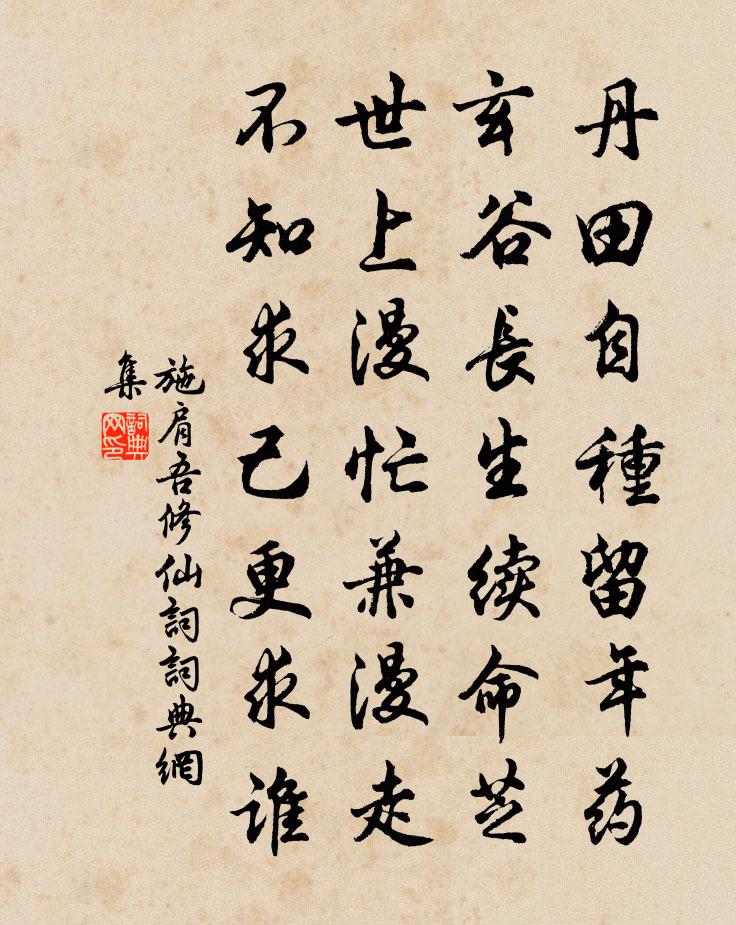 丹田自種留年药
玄谷長生续命芝
世上漫忙兼漫走
不知求己更求谁
施肩吾修仙詞詞典網
集
詞典
网印